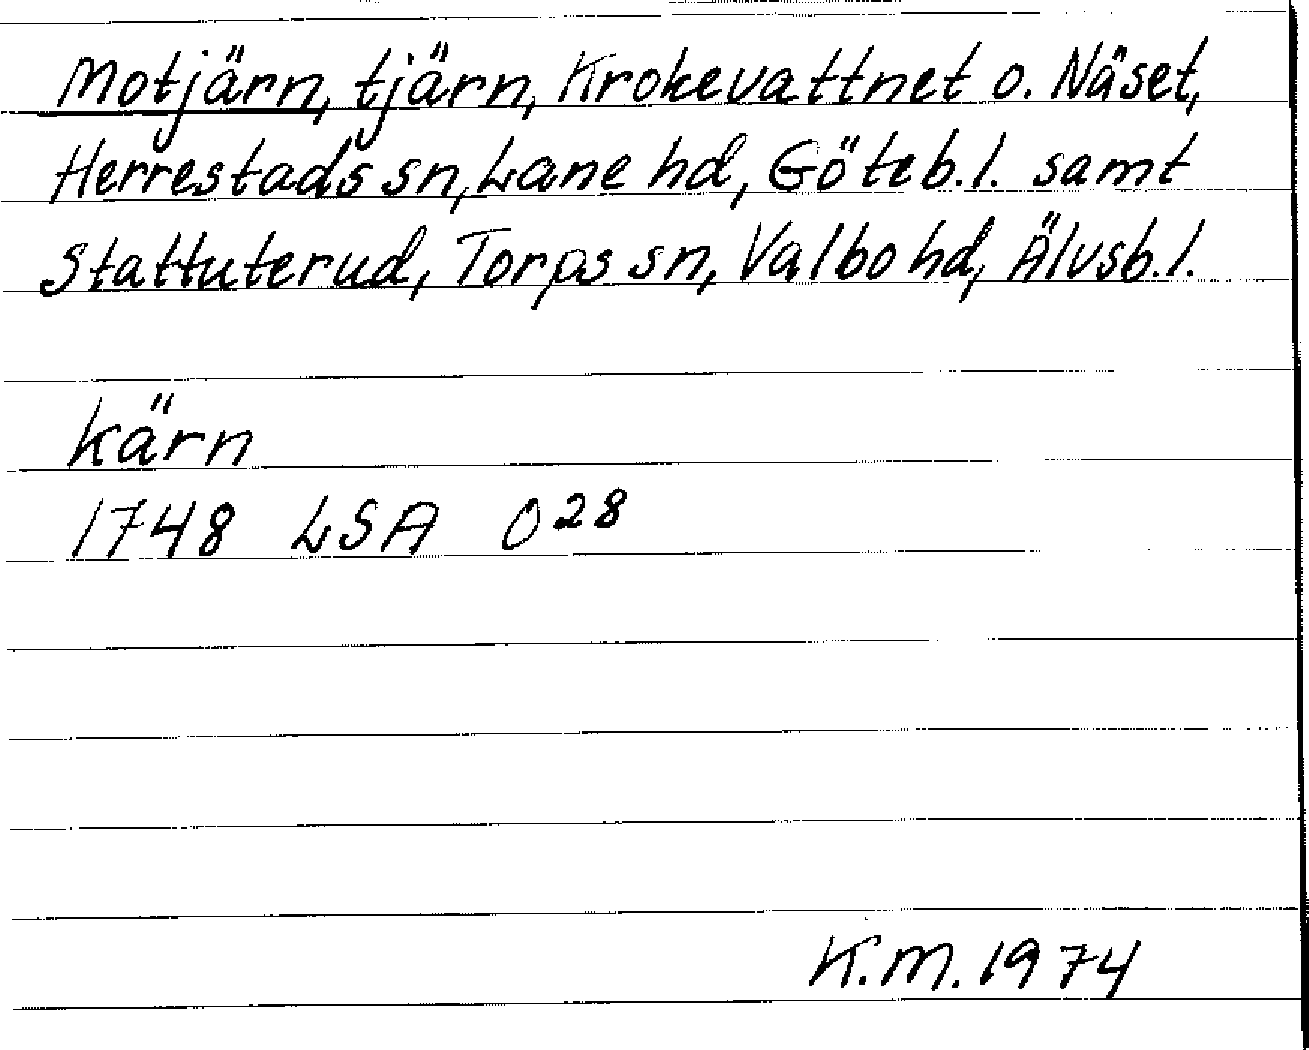 Motjärn, tjärn, Krokevattnet o. Näset,
Herrestads sn, Lane hd, Göteb. l. samt
Stattuterud, Torps sn, Valbo hd, Älvsb. l.
kärn
1748 LSA O28
K.M. 1974